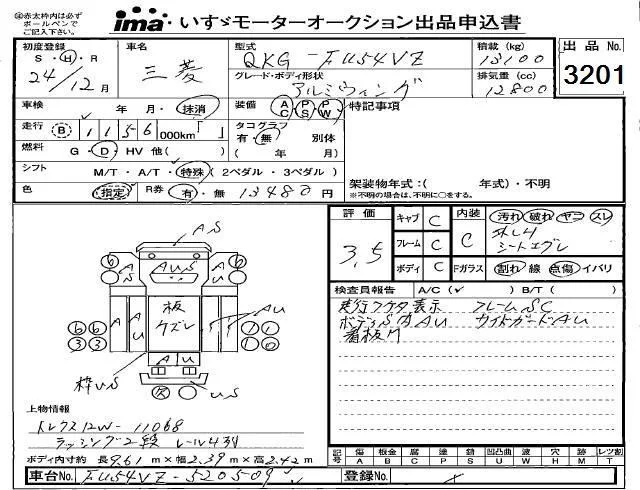 ④赤太枠内は必ず
ボールペンで
ご記入下さい。
ima いすゞモーターオークション出品申込書
初度登録 車名 型式 積載(kg) 出品No.
S・H・R 三菱 QKG-FU54VZ 13100 3201
24/12月 グレード・ボディ形状 アルミウィング 排気量(cc) 12800
車検 年 月・抹消 装備 AC PS PW 特記事項
走行 B 1156,000km「 」 タコグラフ 有・無 別体
燃料 G・D・HV 他( ) ( 年 月)
シフト M/T・A/T・特殊(2ペダル・3ペダル) 架装物年式:( 年式)・不明
色 指定 R券 有・無 13480円 ※不明の場合は、不明に○をする。
評価 キャブ C 内装 汚れ 破れ ヤニ スレ
3.5 フレーム C C
シートエグレ
ボディ C Fガラス 割れ 線 点傷 イバリ
検査員報告 A/C(✓) B/T( )
実行フケタ表示 フレームSC
ボディS内AU サイドガードAU
看板M
AS
AUS
6 6
AS AS
板
ケズレ
AU
A AU AU A
6 6 1 1
3 3 1 1
AU
枠US
欠
US
上物情報
トレクス12W-11068
ラッシング2段 レール4列
ボディ内寸約 長9.61m×幅2.39m×高2.42m
記号 傷 板金 腐 塗 錆 凹凸曲 波 穴 跡 レツ割
A B C P S U W H M T
車台No. FU54VZ-520509 登録No.